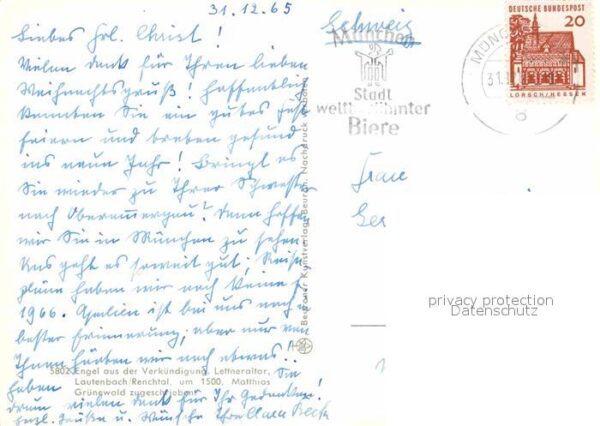 31.12.65
Liebes Frl. Christl!
Vielen Dank für Ihren lieben
Weihnachtsgruß! Hoffentlich
konnten Sie ein gutes Fest
feiern und kommen gesund
ins neue Jahr! Bringt es
Sie wieder zu Ihrer Schwester
nach Oberammergau? Dann hoffen
wir Sie in München zu sehen
Uns geht es soweit gut; Reise
pläne haben wir noch keine f.
1966. ist bei uns noch i.
bester Erinnerung; aber nur von
Ihnen hörten wir noch etwas. Sie
haben
drum vielen Dank für Ihr Gedenken!
Herzl. Grüße u. Wünsche Ihre Clara Beck
5802 Engel aus der Verkündigung. Lettneraltar,
Lautenbach/Renchtal, um 1500, Matthias
Grünewald zugeschrieben
Beuroner Kunstverlag Beuron. Nachdruck verboten
Schweiz
München
Stadt
weltberühmter
Biere
MÜNC
31.1
8
DEUTSCHE BUNDESPOST
20
LORSCH/HESSEN
Frau
Ger
privacy protection
Datenschutz